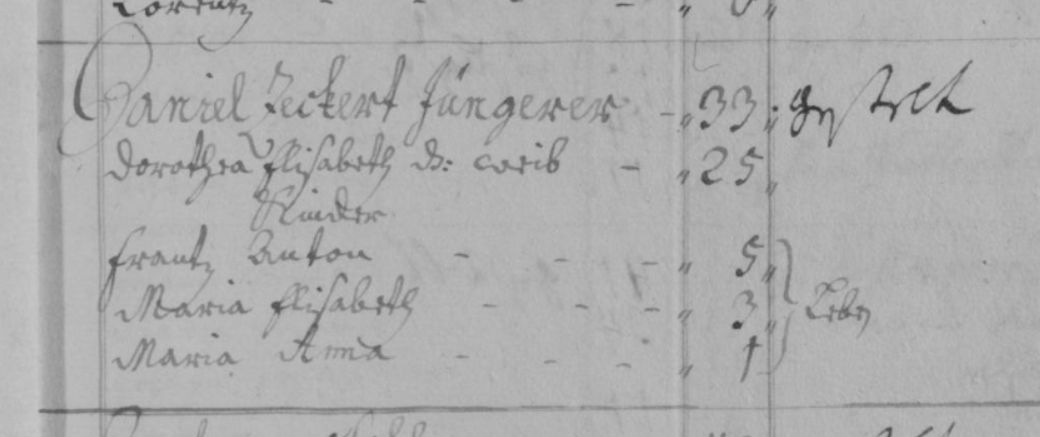 Lorentz - - - „ 6 „
Daniel Zeckert Jüngerer - „ 33 „
Dorothea Elisabeth d: weib - „ 25 „
Kinder
Frantz Anton - - - „ 5 „
Maria Elisabeth - - - „ 3 „ Leben
Maria Anna - - - „ 1